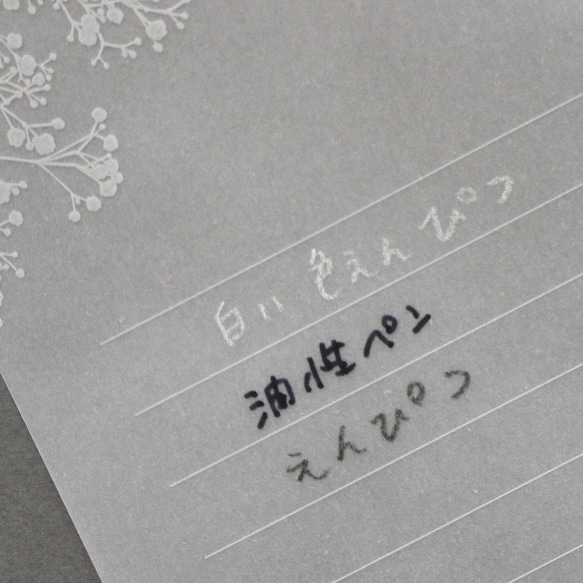 白い 色えんぴつ
油性ペン
えんぴつ